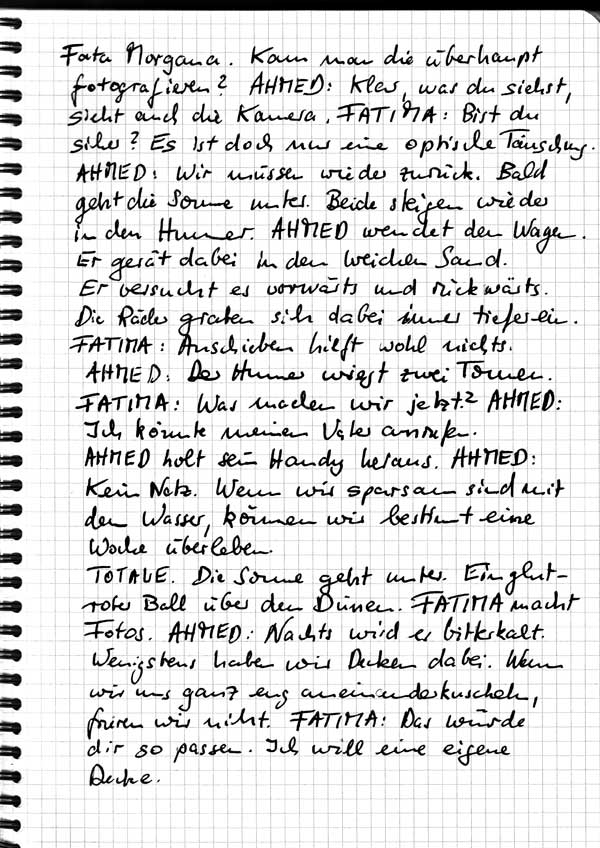 Fata Morgana. Kann man die überhaupt
fotografieren? AHMED: Klar, was du siehst,
sieht auch die Kamera. FATIMA: Bist du
sicher? Es ist doch nur eine optische Täuschung.
AHMED: Wir müssen wieder zurück. Bald
geht die Sonne unter. Beide steigen wieder
in den Hummer. AHMED wendet den Wagen.
Er gerät dabei in den weichen Sand.
Er versucht es vorwärts und rückwärts.
Die Räder graben sich dabei immer tiefer ein.
FATIMA: Anschieben hilft wohl nichts.
AHMED: Der Hummer wiegt zwei Tonnen.
FATIMA: Was machen wir jetzt? AHMED:
Ich könnte meinen Vater anrufen.
AHMED holt sein Handy heraus. AHMED:
Kein Netz. Wenn wir sparsam sind mit
dem Wasser, können wir bestimmt eine
Woche überleben.
TOTALE. Die Sonne geht unter. Ein glut-
roter Ball über den Dünen. FATIMA macht
Fotos. AHMED: Nachts wird es bitterkalt.
Wenigstens haben wir Decken dabei. Wenn
wir uns ganz eng aneinanderkuscheln,
frieren wir nicht. FATIMA: Das würde
dir so passen. Ich will eine eigene
Decke.